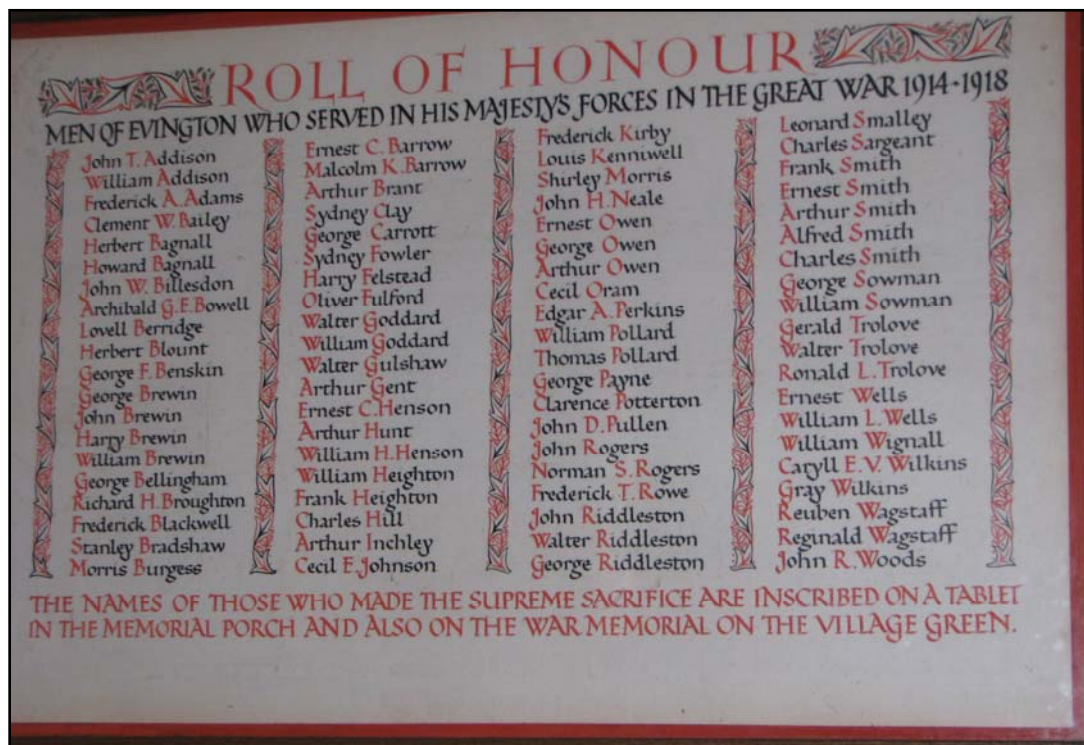 ROLL OF HONOUR
MEN OF EVINGTON WHO SERVED IN HIS MAJESTY'S FORCES IN THE GREAT WAR 1914-1918
John T. Addison
William Addison
Frederick A. Adams
Clement W. Bailey
Herbert Bagnall
Howard Bagnall
John W. Billesdon
Archibald G.E. Bowell
Lovell Berridge
Herbert Blount
George F. Benskin
George Brewin
John Brewin
Harry Brewin
William Brewin
George Bellingham
Richard H. Broughton
Frederick Blackwell
Stanley Bradshaw
Morris Burgess
Ernest C. Barrow
Malcolm K. Barrow
Arthur Brant
Sydney Clay
George Carrott
Sydney Fowler
Harry Felstead
Oliver Fulford
Walter Goddard
William Goddard
Walter Gulshaw
Arthur Gent
Ernest C. Henson
Arthur Hunt
William H. Henson
William Heighton
Frank Heighton
Charles Hill
Arthur Inchley
Cecil E. Johnson
Frederick Kirby
Louis Kenniwell
Shirley Morris
John H. Neale
Ernest Owen
George Owen
Arthur Owen
Cecil Oram
Edgar A. Perkins
William Pollard
Thomas Pollard
George Payne
Clarence Potterton
John D. Pullen
John Rogers
Norman S. Rogers
Frederick T. Rowe
John Riddleston
Walter Riddleston
George Riddleston
Leonard Smalley
Charles Sargeant
Frank Smith
Ernest Smith
Arthur Smith
Alfred Smith
Charles Smith
George Sowman
William Sowman
Gerald Trolove
Walter Trolove
Ronald L. Trolove
Ernest Wells
William L. Wells
William Wignall
Caryll E.V. Wilkins
Gray Wilkins
Reuben Wagstaff
Reginald Wagstaff
John R. Woods
THE NAMES OF THOSE WHO MADE THE SUPREME SACRIFICE ARE INSCRIBED ON A TABLET
IN THE MEMORIAL PORCH AND ALSO ON THE WAR MEMORIAL ON THE VILLAGE GREEN.